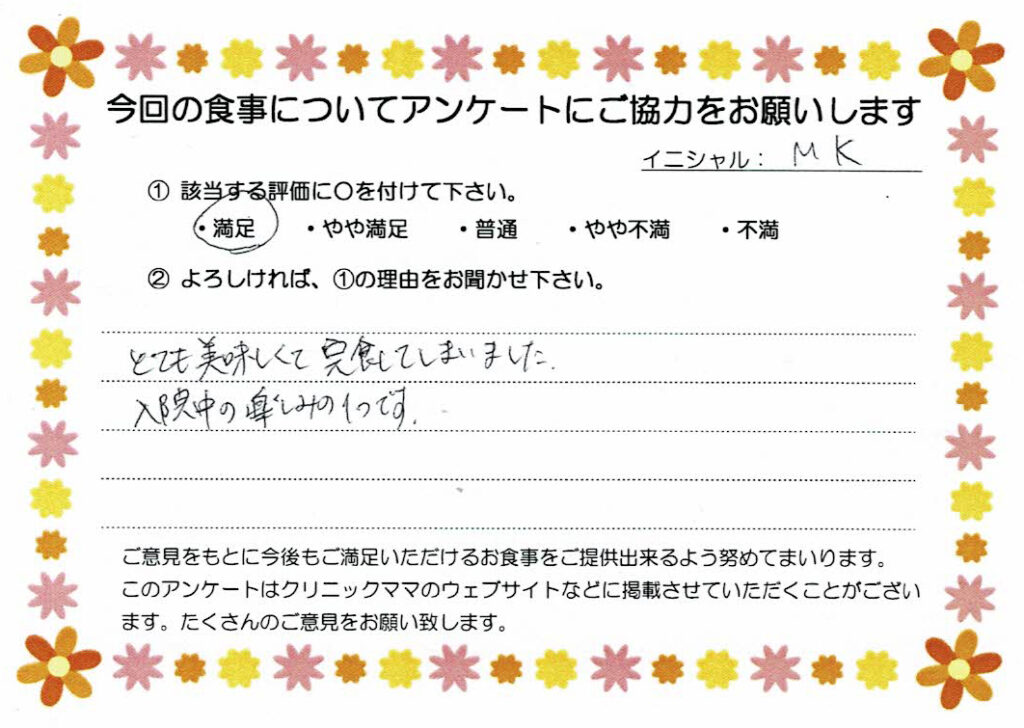 今回の食事についてアンケートにご協力をお願いします
イニシャル： M K
① 該当する評価に〇を付けて下さい。
・満足 ・やや満足 ・普通 ・やや不満 ・不満
② よろしければ、①の理由をお聞かせ下さい。
とても美味しくて 完食してしまいました.
入院中の楽しみの1つです.
ご意見をもとに今後もご満足いただけるお食事をご提供出来るよう努めてまいります。
このアンケートはクリニックママのウェブサイトなどに掲載させていただくことがござい
ます。たくさんのご意見をお願い致します。